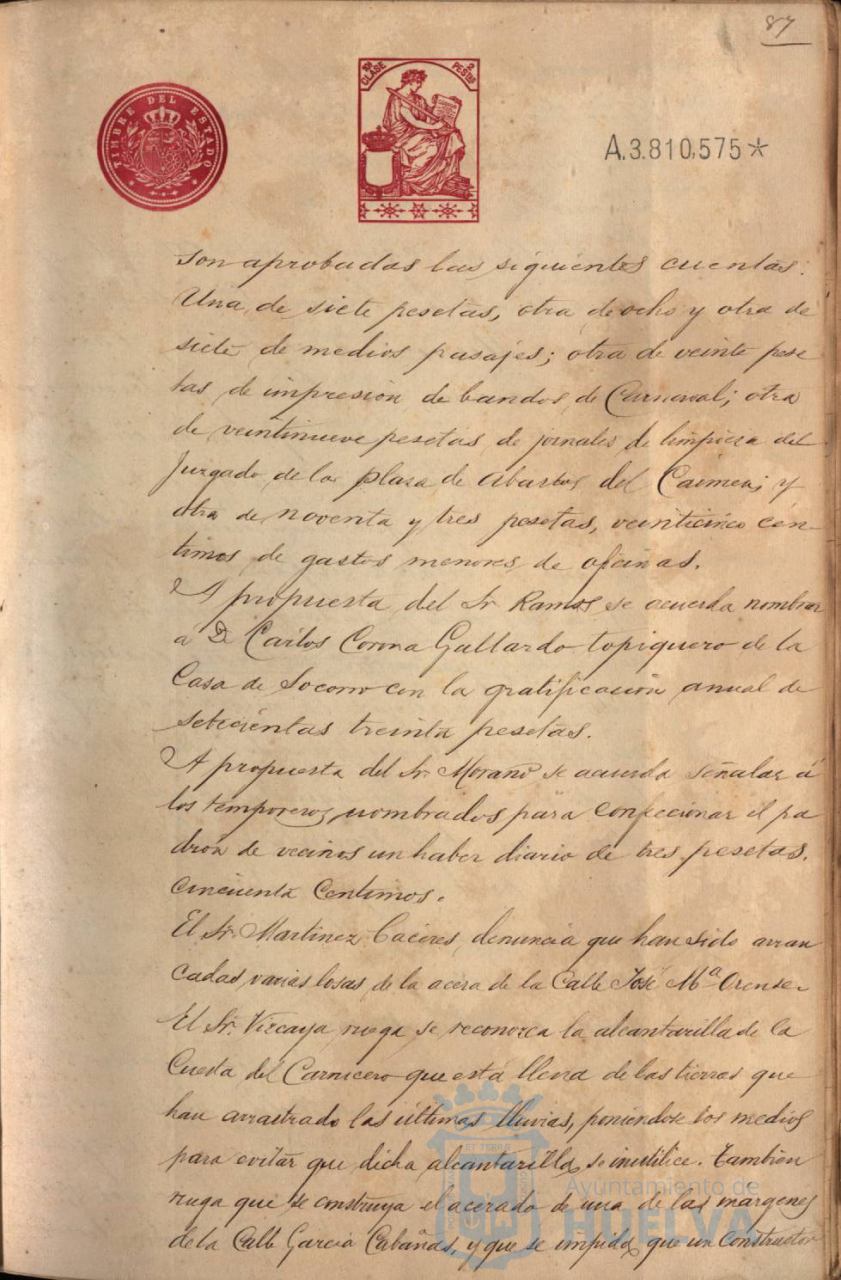 87
TIMBRE DEL ESTADO
10ª CLASE 2 PESETAS
A.3.810,575*
son aprobadas las siguientes cuentas:
Una de siete pesetas, otra de ocho y otra de
siete de medios pasajes; otra de veinte pese
tas de impresión de bandos de Carnaval; otra
de veintinueve pesetas de jornales de limpieza del
Juzgado de la plaza de Abastos del Carmen; y
otra de noventa y tres pesetas, veinticinco cén-
timos de gastos menores de oficinas.
A propuesta del Sr Ramos se acuerda nombrar
á D. Carlos Corona Gallardo topiquero de la
Casa de Socorro con la gratificación anual de
setecientas treinta pesetas.
A propuesta del Sr. Moraño se acuerda señalar á
los temporeros nombrados para confeccionar el pa
dron de vecinos un haber diario de tres pesetas.
cincuenta centimos.
El Sr. Martinez Caceres, denuncia que han sido arran
cadas varias losas de la acera de la Calle José Mª Orense.
El Sr. Vizcaya ruega se reconozca la alcantarilla de la
Cuesta del Carnicero que está llena de las tierras que
han arrastrado las últimas lluvias, poniendose los medios
para evitar que dicha alcantarilla se inutilice. Tambien
ruega que se construya el acerado de una de las margenes
de la Calle Garcia Cabañas, y que se impida que un constructor
Ayuntamiento de
HUELVA